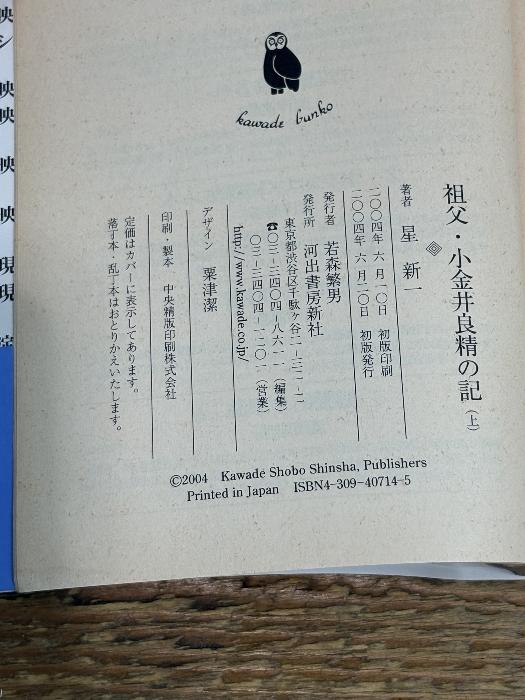 kawade bunko
祖父・小金井良精の記(上)
著者 星 新一
二〇〇四年 六 月一〇日 初版印刷
二〇〇四年 六 月二〇日 初版発行
発行者 若森繁男
発行所 河出書房新社
東京都渋谷区千駄ヶ谷二-三二-二
☎〇三-三四〇四-八六一一(編集)
〇三-三四〇四-一二〇一(営業)
http://www.kawade.co.jp/
デザイン 粟津潔
印刷・製本 中央精版印刷株式会社
定価はカバーに表示してあります。
落丁本・乱丁本はおとりかえいたします。
©2004 Kawade Shobo Shinsha, Publishers
Printed in Japan ISBN4-309-40714-5